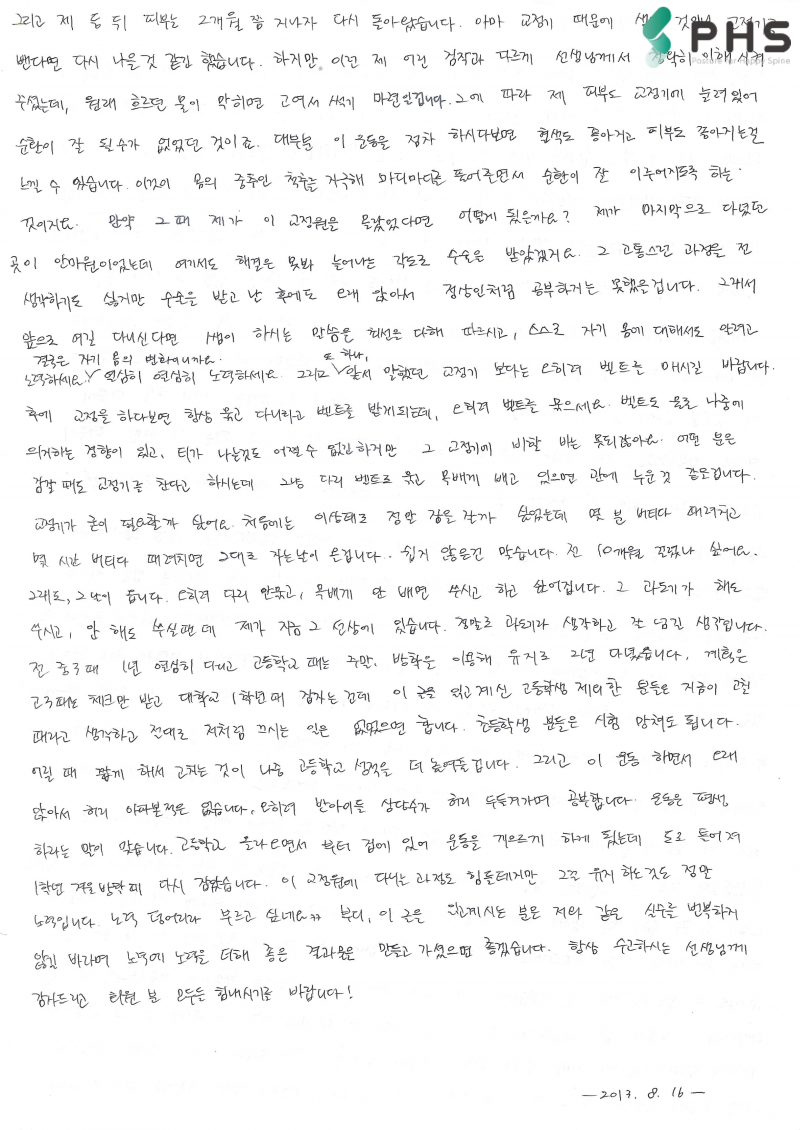 PHS
Posture for Happy Spine
그리고 제 등 뒤 피부는 2개월 쯤 지나자 다시 돌아왔습니다. 아마 교정기 때문에 교정기를
뺀다면 다시 나을것 같긴 했습니다. 하지만, 이런 제 어린 짐작과 다르게 선생님께서 정확히 이해시켜
주셨는데, 원래 흐르던 물이 막히면 고여서 썩기 마련인겁니다. 그에 따라 제 피부도 교정기에 눌려있어
순환이 잘 될수가 없었던 것이죠. 대부분 이 운동을 점차 하시다보면 혈색도 좋아지고 피부도 좋아지는걸
느낄 수 있습니다. 이것이 몸의 중추인 척추를 자극해 마디마디를 풀어주면서 순환이 잘 이루어지도록 하는
것이지요. 만약 그때 제가 이 교정원을 몰랐었다면 어떻게 됬을까요? 제가 마지막으로 다녔던
곳이 안마원이었는데 여기서도 해결은 못봐 늘어나는 각도로 수술은 받았겠지요. 그 고통스런 과정을 전
생각하기도 싫지만 수술을 받고 난 후에도 오래 앉아서 정상인처럼 공부하지는 못했을겁니다. 그래서
앞으로 여길 다니신다면 쌤이 하시는 말씀을 최선을 다해 따르시고, 스스로 자기 몸에 대해서도 알려고
결국은 자기 몸의 변화이니까요. 또 하나,
노력하세요. 열심히 열심히 노력하세요. 그리고 앞서 말했던 교정기 보다는 오히려 벨트를 매시길 바랍니다.
후에 교정을 하다보면 항상 묶고 다니라고 벨트를 받게되는데, 오히려 벨트를 묶으세요. 벨트도 물론 나중에
의지하는 경향이 있고, 티가 나는것도 어쩔수 없긴하지만 그 교정기에 비할 바는 못되잖아요. 어떤 분은
잠잘 때도 교정기를 찬다고 하시는데 그냥 다리 벨트로 묶고 목베개 베고 있으면 관에 누운것 같을겁니다.
교정기가 굳이 필요할까 싶어요. 처음에는 이상태로 정말 잠을 잘까 싶었는데 몇 분 버티다 때려치고
몇 시간 버티다 때려치면 그대로 자는날이 온겁니다. 쉽지 않은건 맞습니다. 전 10개월 걸렸나 싶어요.
그래도, 그날이 옵니다. 오히려 다리 안묶고, 목베개 안 베면 쑤시고 하고 싶어집니다. 그 과도기가 해도
쑤시고, 안 해도 쑤실텐데 제가 지금 그 선상에 있습니다. 정말로 과도기라 생각하고 잘 넘길 생각입니다.
전 중3때 1년 열심히 다니고 고등학교 때는 주말, 방학을 이용해 유지로 2년 다녔습니다. 계획은
고3때는 체크만 받고 대학교 1학년때 잡자는건데 이 글을 읽고계신 고등학생 제외한 분들은 지금이 고칠
때라고 생각하고 절대로 저처럼 끄시는 일은 없었으면 합니다. 초등학생 분들은 시험 망쳐도 됩니다.
어릴 때 짧게 해서 고치는 것이 나중 고등학교 성적을 더 높여줄겁니다. 그리고 이 운동 하면서 오래
앉아서 허리 아파본적은 없습니다. 오히려 반아이들 상당수가 허리 두드려가며 공부합니다. 운동은 평생
하라는 말이 맞습니다. 고등학교 올라오면서 부터 겁에 있어 운동을 게으르게 하게 됬는데 도로 틀어져
1학년 겨울방학때 다시 잡았습니다. 이 교정원에 다니는 과정도 힘들테지만 그걸 유지하는것도 정말
노력입니다. 노력 덩어리라 부르고 싶네요ㅋㅋ 부디, 이 글을 읽고계시는 분은 저와 같은 실수를 번복하지
않길 바라며 노력에 노력을 더해 좋은 결과물을 만들고 가셨으면 좋겠습니다. 항상 수고하시는 선생님께
감사드리고 회원 분 모두들 힘내시기를 바랍니다!
-2013. 8. 16-